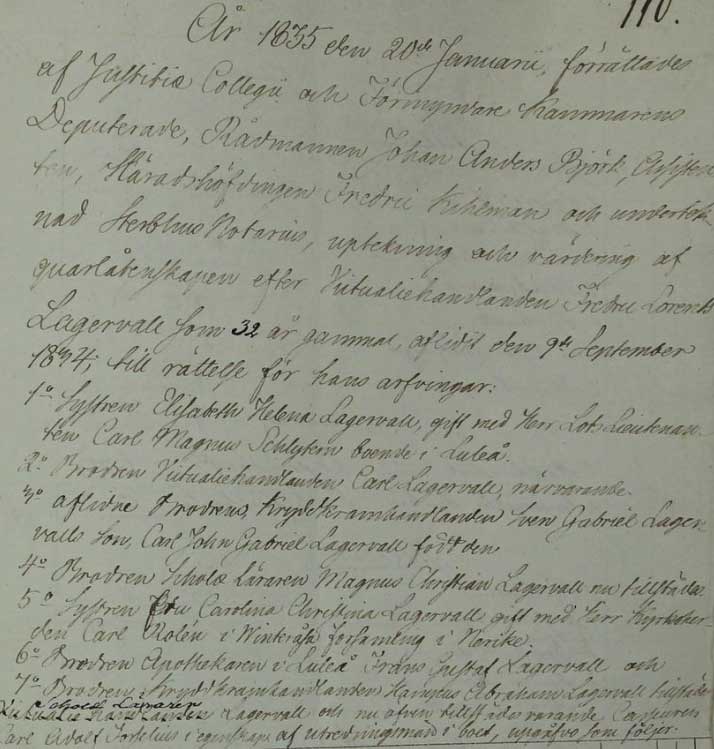 110.
År 1835 den 20de Januarii, förrättades
af Justitiæ Collegii och Förmyndare Kammarens
Deputerade, Rådmannen Johan Anders Björk, Assisten
ten, Häradshöfdingen Fredric Kihlman och underteck-
nad Sterbhus Notarius, upteckning och värdering af
quarlåtenskapen efter Victualiehandlanden Fredric Lorents
Lagervall som 32 år gammal, aflidit den 9de September
1834, till rättelse för hans arfvingar:
1o Systren Elisabeth Helena Lagervall, gift med Herr Lots Lieutenan-
ten Carl Magnus Schlytern boende i Luleå.
2o Brodren Victualiehandlanden Carl Lagervall, närvarande.
3o aflidne Brodrens, Kryddkramhandlanden Sven Gabriel Lager-
valls Son, Carl John Gabriel Lagervall född den
4o Brodren Scholæ Läraren Magnus Christian Lagervall nu tillstädes
5o Systren Fru Carolina Christina Lagervall gift med Herr Kyrkoher-
den Carl Rolén i Wintråsa församling i Nerike.
6o Brodren Apothekaren i Luleå Frans Gustaf Lagervall och
7o Brodren Kryddkramhandlanden Hampus Abraham Lagervall tillstädes
Schoele Läraren
Victualie Handlanden Lagervall och nu äfven tillstädes varande,
Carl Adolf i egenskap af utredningsman i boet, uppgåfvo som följer: